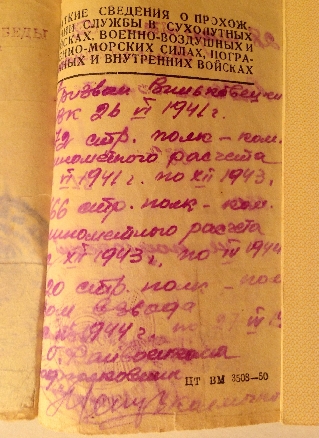 БЕДЫ
ТКИЕ СВЕДЕНИЯ О ПРОХОЖ-
НИИ СЛУЖБЫ В СУХОПУТНЫХ
ЙСКАХ, ВОЕННО-ВОЗДУШНЫХ И
ЕННО-МОРСКИХ СИЛАХ, ПОГРА-
НЫХ И ВНУТРЕННИХ ВОЙСКАХ
Призван
ВК 26 VI 1941 г.
72 стр. полк – ком.
инометного расчета
VI 1941 г. по XII 1943,
66 стр. полк – ком.
инометного расчета
с XII 1943 г., по IV 1944
20 стр. полк – пом
ком взвода
1944 г. по
Райвоенкома
одполковник
ЦТ ВМ 3508—50